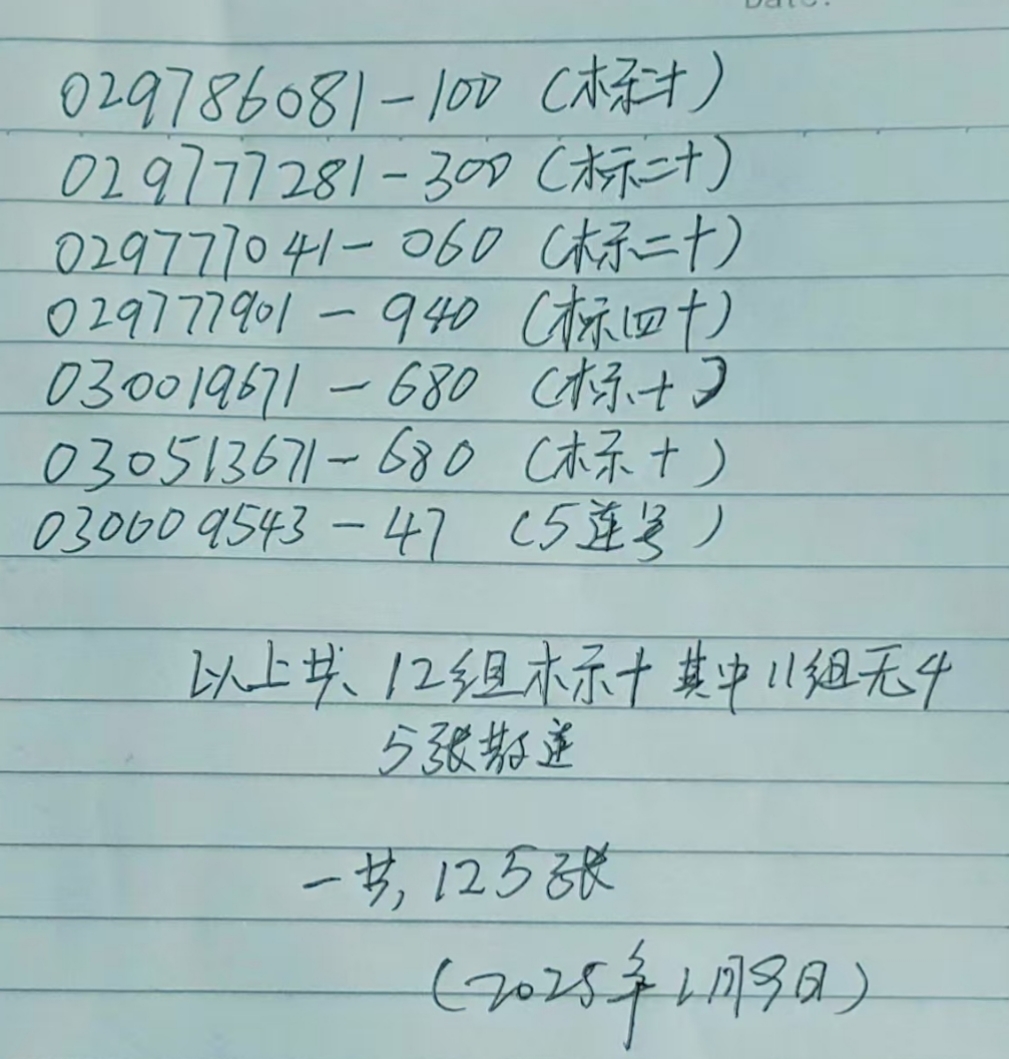 Date:
029786081-100 (标二十)
029777281-300 (标二十)
029777041-060 (标二十)
029777901-940 (标四十)
030019671-680 (标十)
030513671-680 (标十)
030609543-47 (5连号)
以上共、12组标十其中11组无4
5张散连
一共,125张
(2025年1月9日)